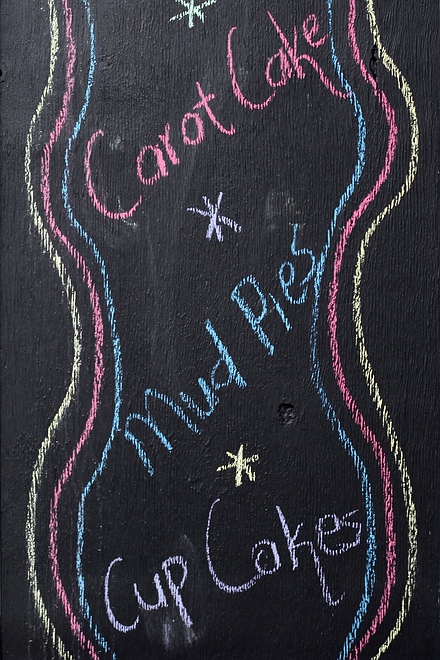 Carot Cake
Mud Pies
Cup Cakes